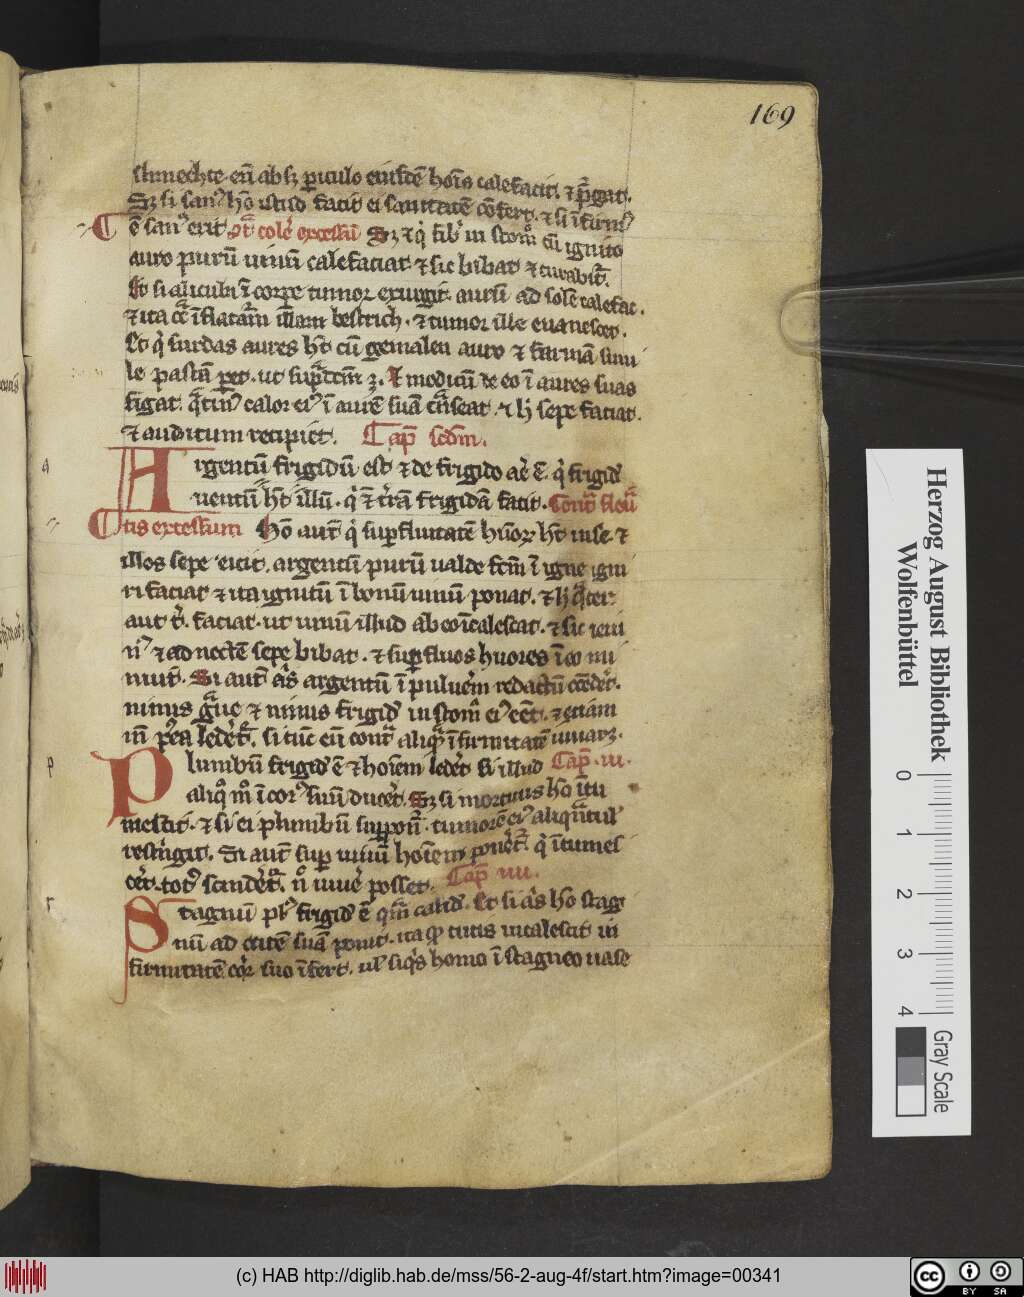 169
slimechte. eū absq̄ piculo eiusdē hoīs calefacit. ⁊ p̄gat.
Sꝫ si sanꝰ hō istud facit ei sanitatē cōfert. ⁊ si īfirmꝰ
ē sanꝰ erit. cōt͛ cole͛ excessū Sꝫ ⁊ qͥ fib͛ in stom͛ cū ignito
auro purū uinū calefaciat ⁊ sic bibat ⁊ curabit͛.
Et si alicubi ī corpe tumor exurgit. aurū ad solē calefac.
⁊ ita illam bestrich. ⁊ tumor ille euanescet.
Et qͥ surdas aures ht̄ cū gemalen auro ⁊ farinā simi
le pastā pet. ut sup̄dcm̄ ꝫ. Et modicū de eo ī aures suas
figat. calor eiꝰ ī aurē suā t͛nseat. ⁊ h͛ sepe faciat.
⁊ auditum recipiet. Cap̄ scdm̄.
Argentū frigidū est ⁊ de frigido ae͛ ē. q͛ frigidꝰ
uentū ht̄ illū. q͛ ⁊ t͛rā frigidā facit. Cont͛ fleū
tis excessum Hō aut̄ qͥ supfluitatē hūorꝫ ht̄ in se. ⁊
illos sepe eicit. argentū purū ualde fcm̄ ī igne igni
ri faciat ⁊ ita ignitū ī bonū uinū ponat. ⁊ h͛ q͛ter
aut t͛. faciat. ut uinū illud ab eo īcalescat. ⁊ sic ieiu
nꝰ ⁊ ad noctē sepe bibat. ⁊ supfluos hūores ī eo mi
nuit. Si aut̄ q͛s argentū ī puluerē redactū cōedet͛.
nimis g͛ue ⁊ nimis frigidꝰ in stom͛ eiꝰ eēt. ⁊ etiam
in̄ p͛ea ledet͛. si tūc eū cont͛ aliq͛ īfirmitatē iuuarꝫ.
Plumbū frigidꝰ ē ⁊ hoīem lede͛t si illud Cap̄. iii.
aliq͛ m͛ ī corp͛ suū duce͛t. Sꝫ si mortuus hō ītu
mescit. ⁊ si ei plumbū suppon͛. tumorē eiꝰ aliq͛ntulꝰ
rest͛ngit. Si aut̄ sup uiuū hoīem pone͛t͛. q͛ ītumes
ce͛t. totꝰ scinde͛t͛. n͛ uiue͛ posset. Cap̄ iiii.
Stagnū plꝰ frigidꝰ ē q͛m calidꝰ. Et si q͛s hō stag
nū ad cutē suā ponit. ita qꝫ cutis incalescit in
firmitatē corp͛ suo īfert. ul͛ siq͛s homo ī stagneo uase
Herzog August Bibliothek
Wolfenbüttel
0 1 2 3 4
Gray Scale
(c) HAB http://diglib.hab.de/mss/56-2-aug-4f/start.htm?image=00341
cc BY SA